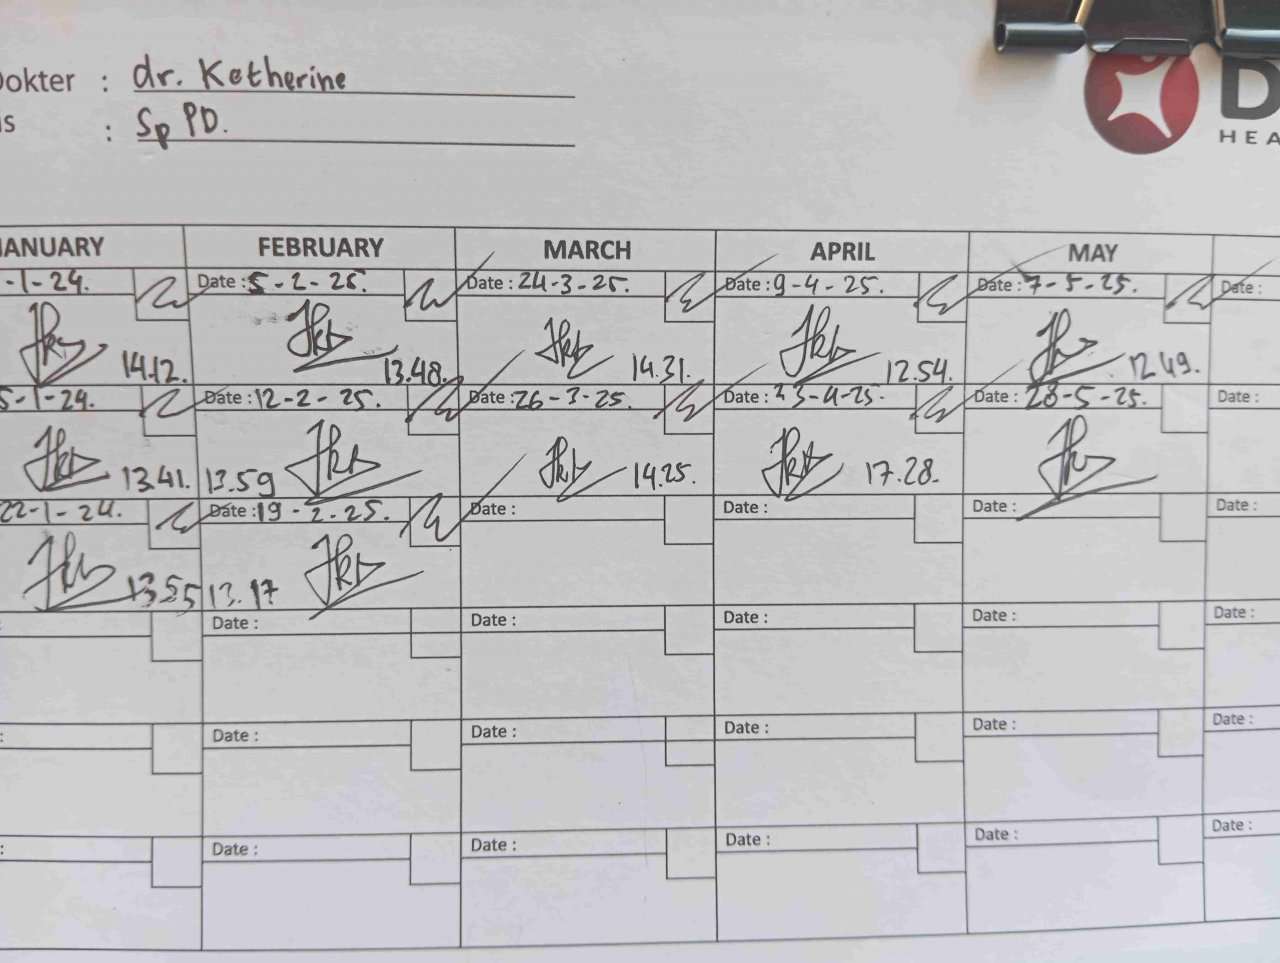 Dokter : dr. Ketherine
is : Sp PD.
HEA
JANUARY FEBRUARY MARCH APRIL MAY
-1-24. Date : 5-2-25. Date : 24-3-25. Date : 9-4-25. Date : 7-5-25. Date :
14.12. 13.48. 14.31. 12.54. 12.49.
5-1-24. Date : 12-2-25. Date : 26-3-25. Date : 23-4-25. Date : 28-5-25. Date :
13.41. 13.59 14.25. 17.28.
22-1-24. Date : 19-2-25. Date : Date : Date : Date :
13.55 13.17
: Date : Date : Date : Date : Date :
: Date : Date : Date : Date : Date :
: Date : Date : Date : Date : Date :